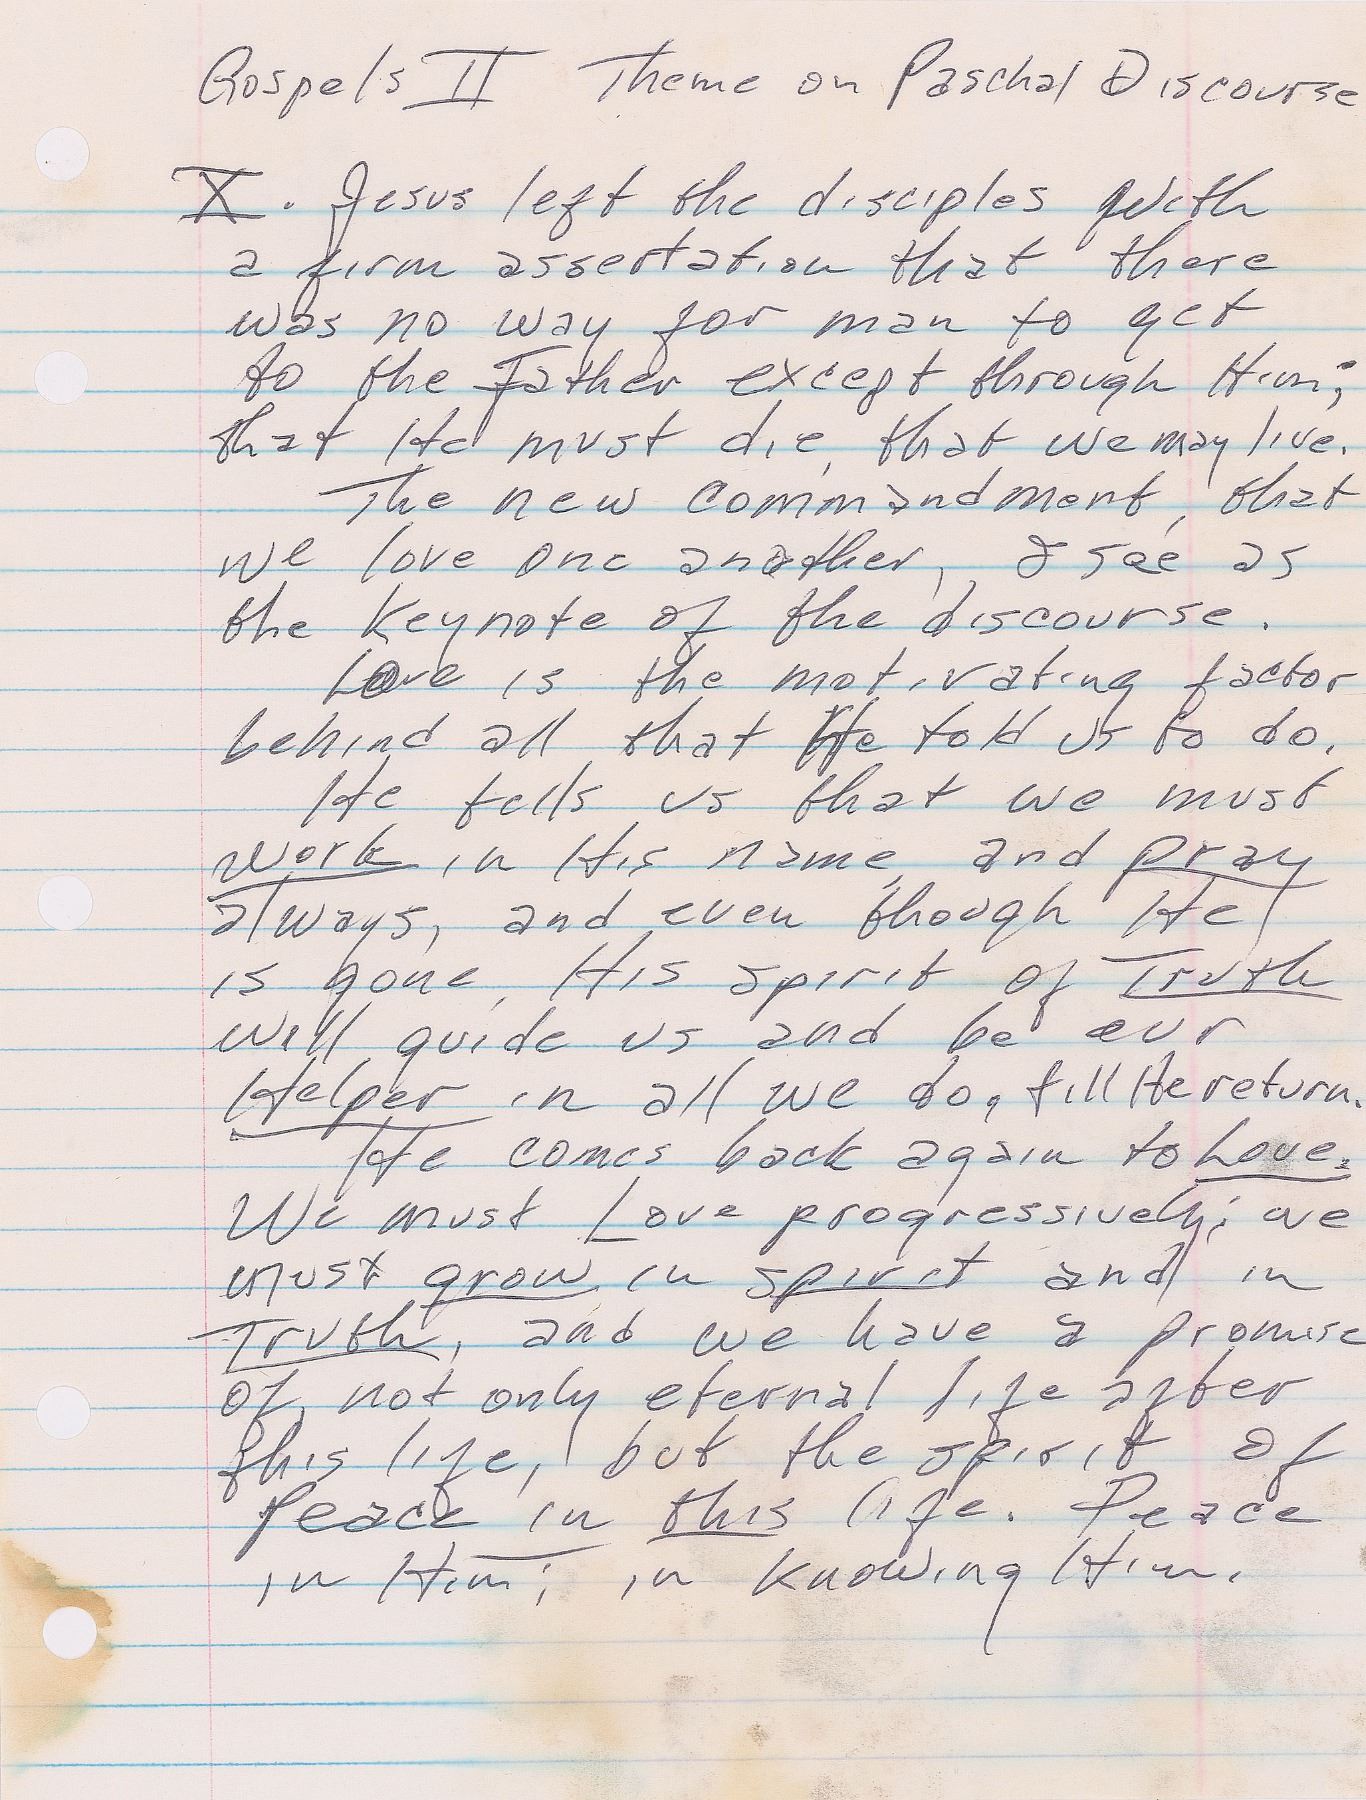 Gospels II Theme on Paschal Discourse
X. Jesus left the disciples with
a firm assertation that there
was no way for man to get
to the Father except through Him;
that He must die, that we may live.
The new commandment, that
we love one another, I see as
the keynote of the discourse.
Love is the motivating factor
behind all that He told us to do.
He tells us that we must
work in His name, and pray
always, and even though He
is gone, His spirit of Truth
will guide us and be our
Helper in all we do, till He return.
He comes back again to Love.
We must Love progressively; we
must grow in spirit and in
Truth, and we have a promise
of, not only eternal life after
this life, but the spirit of
Peace in this life. Peace
in Him; in knowing Him.